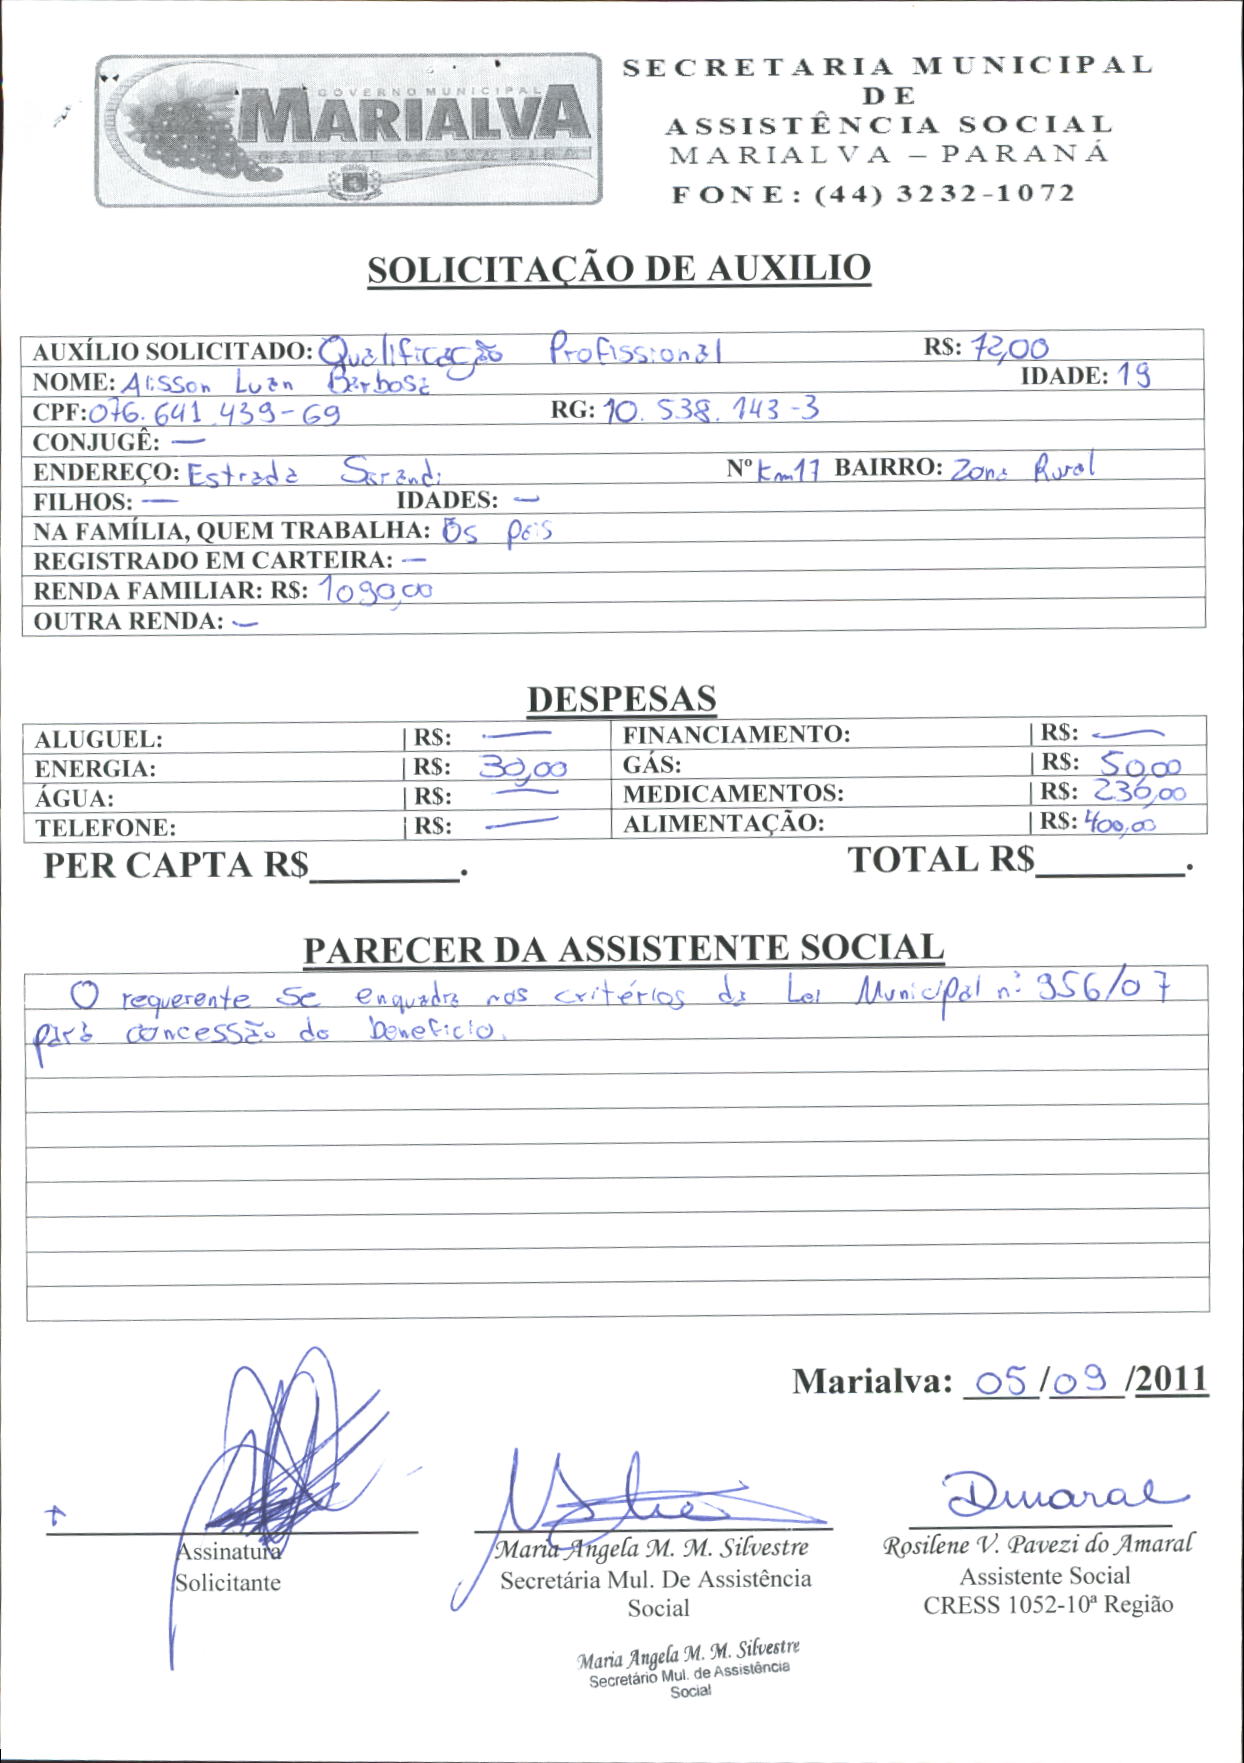 GOVERNO MUNICIPAL
MARIALVA
CAPITAL DA UVA FINA
SECRETARIA MUNICIPAL
DE
ASSISTÊNCIA SOCIAL
MARIALVA – PARANÁ
FONE: (44) 3232-1072
SOLICITAÇÃO DE AUXILIO
AUXÍLIO SOLICITADO: Qualificação Profissional R$: 72,00
NOME: Alisson Luan Barbosa IDADE: 19
CPF: 076.641.439-69 RG: 10.538.143-3
CONJUGÊ: —
ENDEREÇO: Estrada Sarandi Nº Km 11 BAIRRO: Zona Rural
FILHOS: — IDADES: —
NA FAMÍLIA, QUEM TRABALHA: Os pais
REGISTRADO EM CARTEIRA: —
RENDA FAMILIAR: R$: 1090,00
OUTRA RENDA: —
DESPESAS
ALUGUEL: | R$: — FINANCIAMENTO: | R$: —
ENERGIA: | R$: 30,00 GÁS: | R$: 50,00
ÁGUA: | R$: — MEDICAMENTOS: | R$: 230,00
TELEFONE: | R$: — ALIMENTAÇÃO: | R$: 400,00
PER CAPTA R$________. TOTAL R$________.
PARECER DA ASSISTENTE SOCIAL
O requerente se enquadra nos critérios da Lei Municipal nº 956/07
para concessão do beneficio.
Marialva: 05/09/2011
Amaral
Assinatura
Solicitante
Maria Angela M. M. Silvestre
Secretária Mul. De Assistência
Social
Rosilene V. Pavezi do Amaral
Assistente Social
CRESS 1052-10ª Região
Maria Angela M. M. Silvestre
Secretário Mul. de Assistência
Social